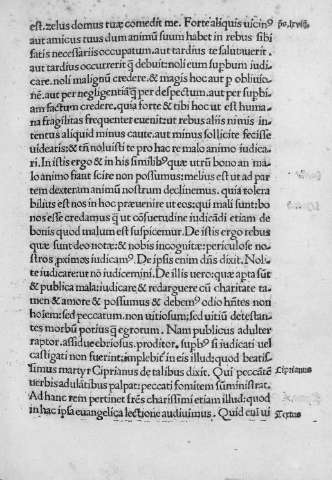 est. zelus domus tuæ comedit me. Forte aliquis uicinꝰ
aut amicus tuus dum animũ suum habet in rebus sibi
satis necessariis occupatum. aut tardius te salutauerit.
aut tardius occurrerit ꝗ̃ debuit: noli eum suꝑbum iudi
care. noli malignũ credere. & magis hoc aut ꝑ obliuio/
nẽ. aut per negligentiã ꝗ̃ per despectum. aut per supbi
am factum credere. quia forte & tibi hoc ut est huma
na fragilitas frequenter euenit: ut rebus aliis nimis in
tentus aliquid minus caute. aut minus sollicite fecisse
uidearis: & tñ noluisti te pro hac re malo animo iudica
ri. In istis ergo & in his similibꝰ quæ utrũ bono an ma
lo animo fiant scire non possumus: melius est ut ad par
tem dexteram animũ nostrum declinemus. quia tolera
bilius est nos in hoc præuenire ut eos: qui mali sunt: bo
nos esse credamus ꝗ̃ ut cõsuetudine iudicãdi etiam de
bonis quod malum est suspicemur. De istis ergo rebus
quæ sunt deo notæ: & nobis incognitæ: periculose no
stros ꝓximos iudicamꝰ. De ipsis enim dñs dixit. Noli/
te iudicare: ut nõ iudicemini. De illis uero: quæ apta sũt
& publica mala: iudicare & redarguere cũ charitate ta
men & amore & possumus & debemꝰ odio hñtes non
hoiem: sed peccatum. non uitiosum: sed uitiũ detestan/
tes morbũ potius ꝗ̃ egrotum. Nam publicus adulter
raptor. assidue ebriosus. proditor. supbꝰ si iudicati uel
castigati non fuerint: implebit̃ in eis illud: quod beatis/
simus martyr Ciprianus de talibus dixit. Qui peccãtẽ
uerbis adulatibus palpat: peccati fomitem sũministrat.
Ad hanc rem pertinet frẽs charissimi etiam illud: quod
in hac ipsa euangelica lectione audiuimus. Quid eni ui
Ciprianus
Textus